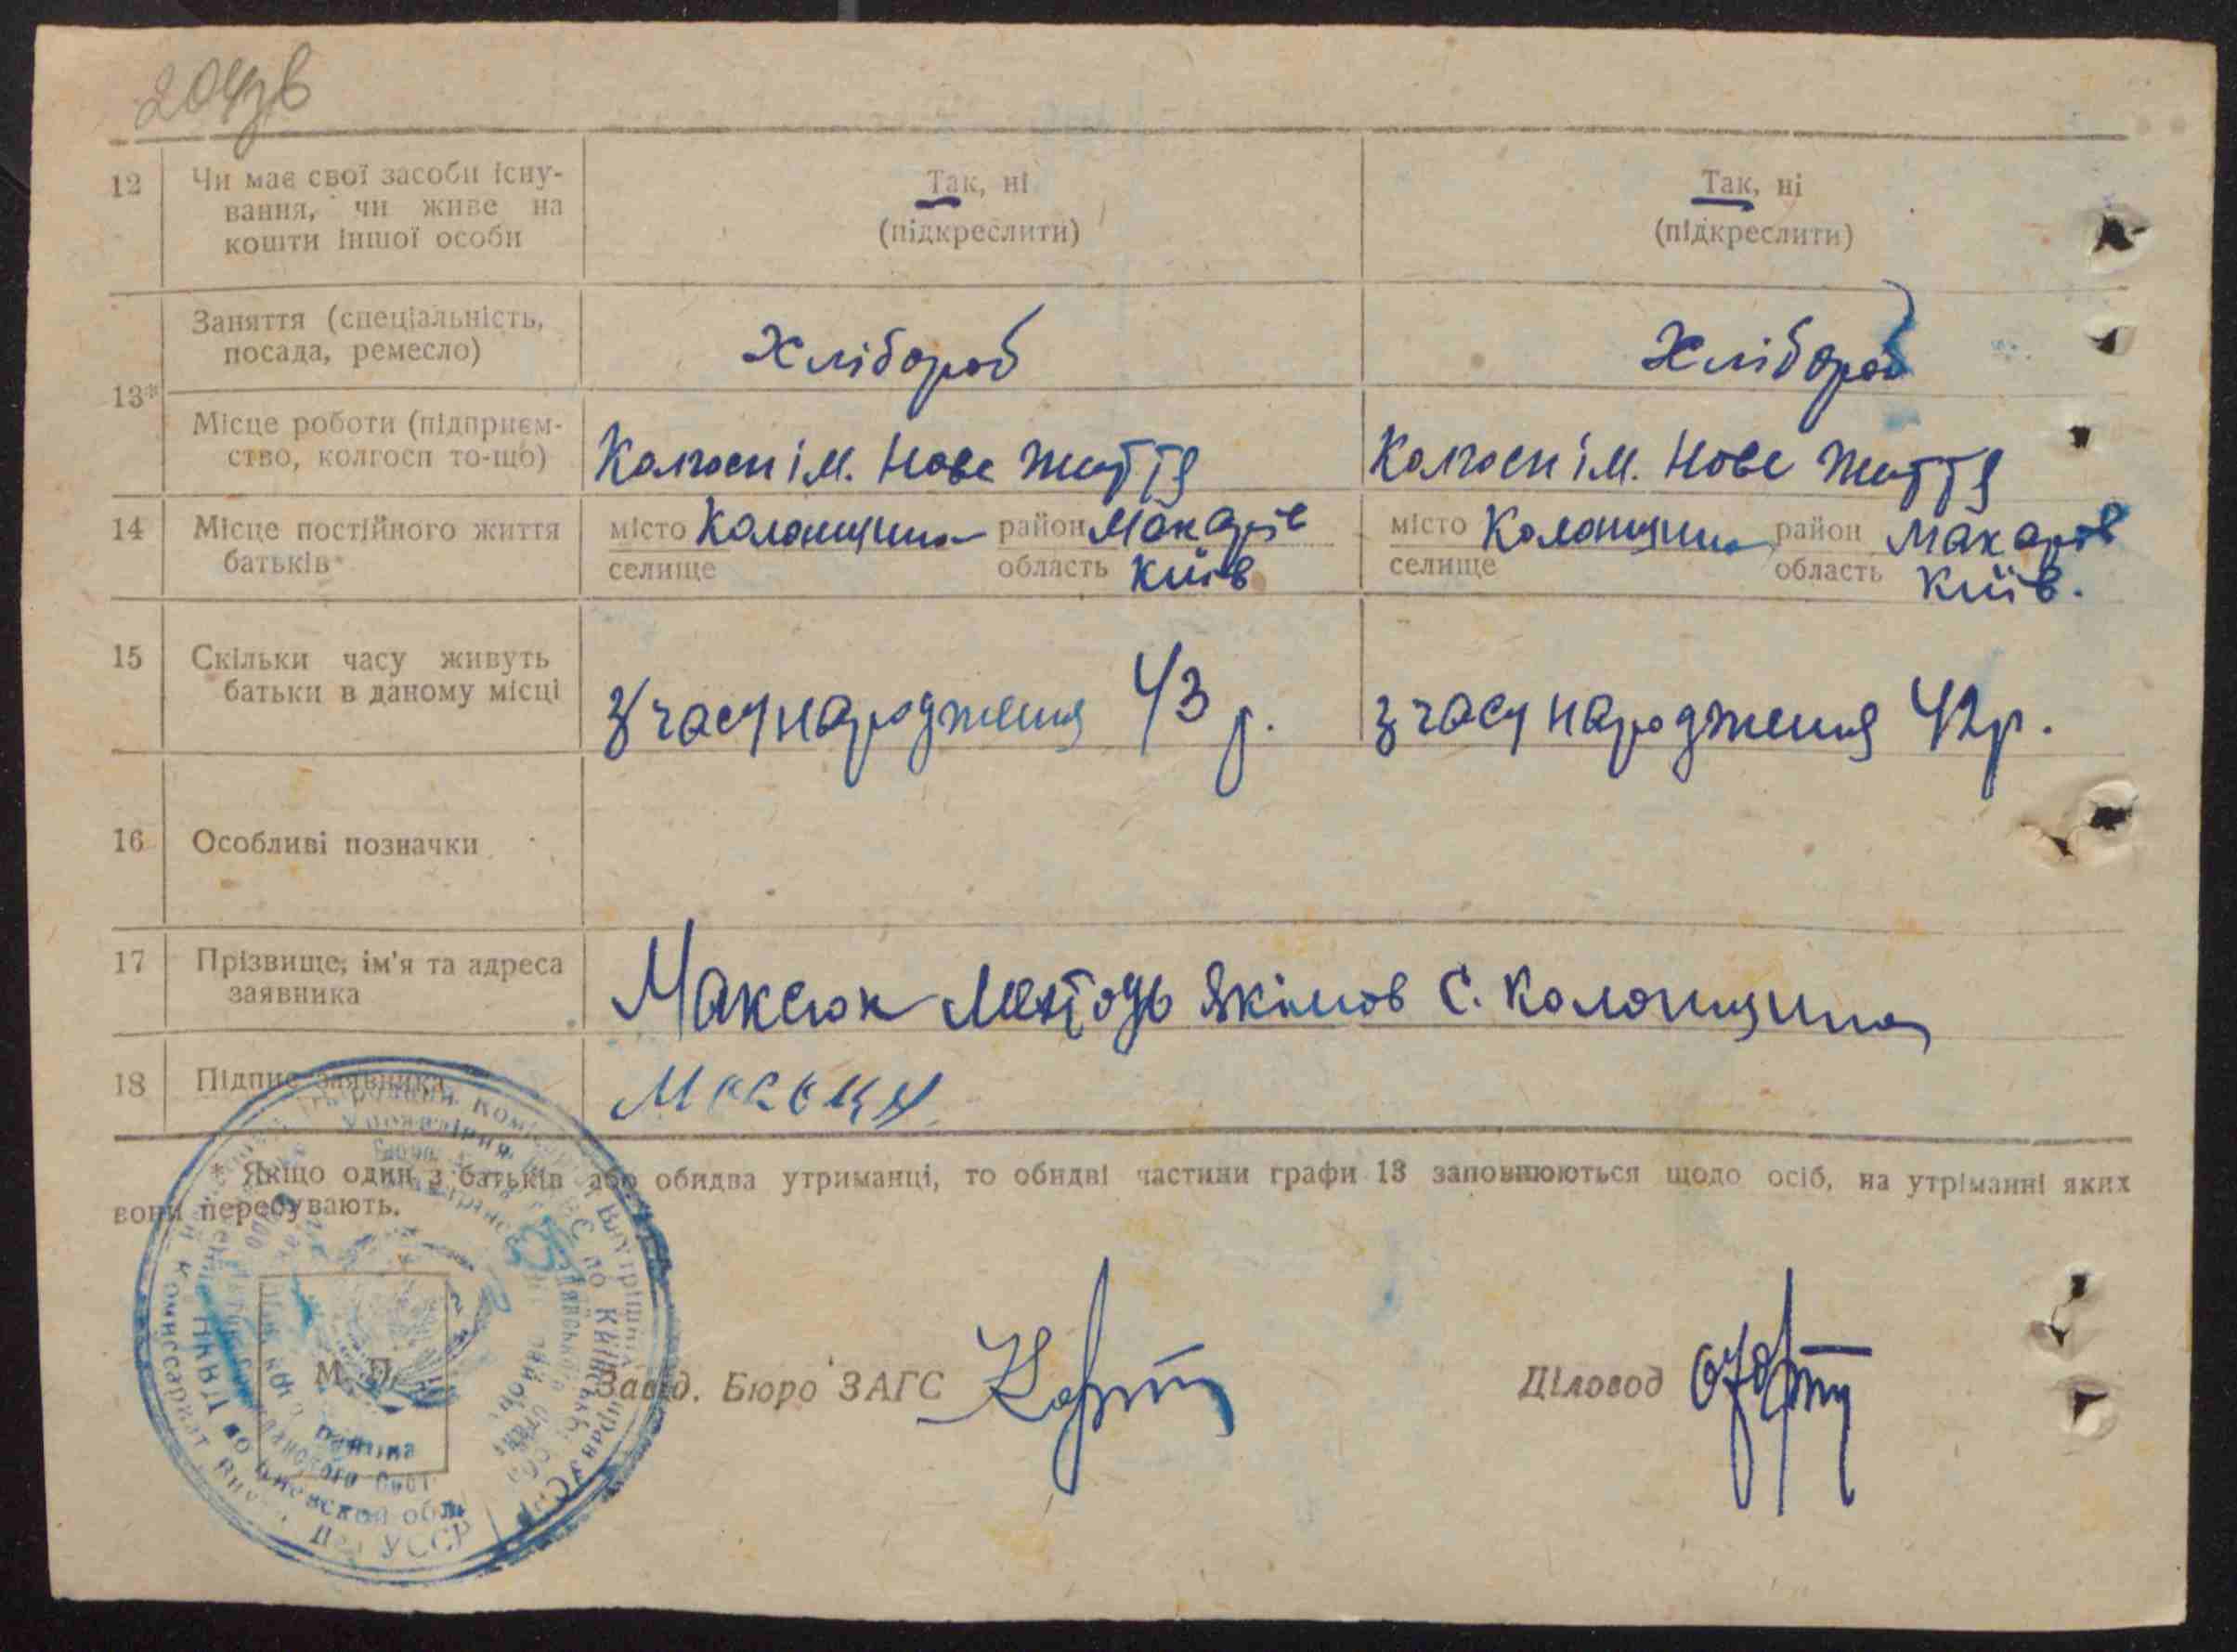 204зв
12 Чи має свої засоби існу- Так, ні Так, ні
вання, чи живе на (підкреслити) (підкреслити)
кошти іншої особи
13* Заняття (спеціальність, Хлібороб Хлібороб
посада, ремесло)
Місце роботи (підприєм- Колгосп ім. Нове життя Колгосп ім. Нове життя
ство, колгосп то-що)
14 Місце постійного життя місто Колонщина район Макарів місто Колонщина район Макарів
батьків селище область Київ селище область Київ.
15 Скільки часу живуть з часу народження 43 р. з часу народження 42 р.
батьки в даному місці
16 Особливі позначки
17 Прізвище, ім'я та адреса Максюк Якімов С. Колонщина
заявника
18 Підпис заявника
* Якщо один з батьків або обидва утриманці, то обидві частини графи 13 заповнюються щодо осіб, на утріманні яких
вони перебувають.
М. П. Завід. Бюро ЗАГС Діловод
НКВД по Киевской обл.
УССР